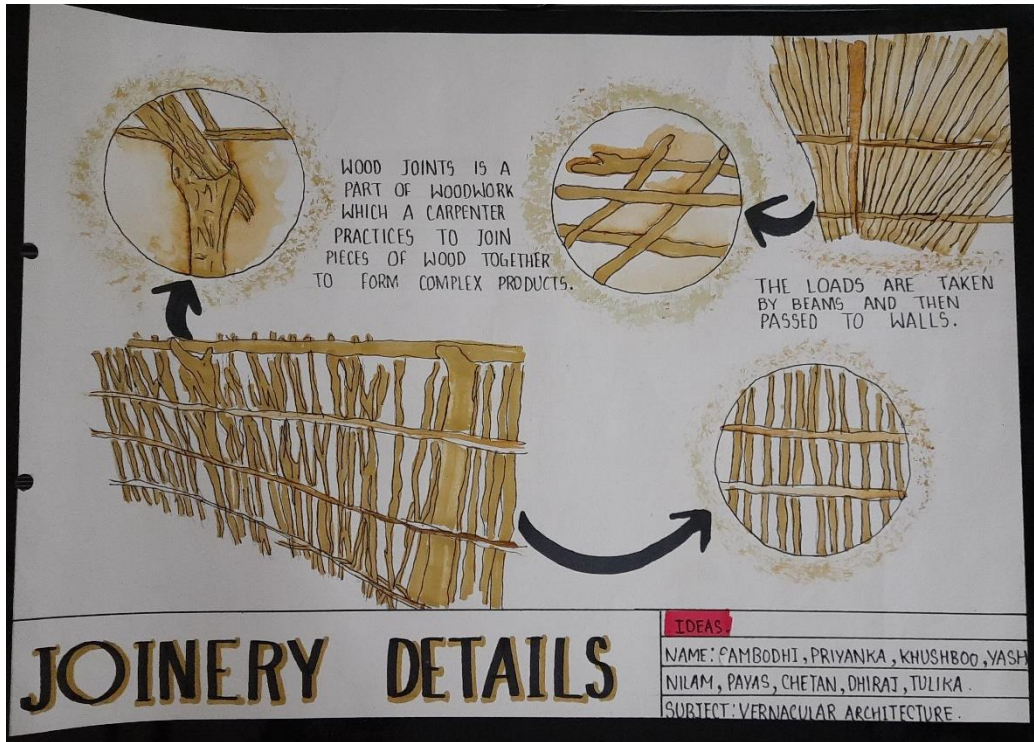 WOOD JOINTS IS A
PART OF WOODWORK
WHICH A CARPENTER
PRACTICES TO JOIN
PIECES OF WOOD TOGETHER
TO FORM COMPLEX PRODUCTS.
THE LOADS ARE TAKEN
BY BEAMS AND THEN
PASSED TO WALLS.
JOINERY DETAILS
IDEAS.
NAME: SAMBODHI, PRIYANKA, KHUSHBOO, YASH
NILAM, PAYAS, CHETAN, DHIRAJ, TULIKA.
SUBJECT: VERNACULAR ARCHITECTURE.